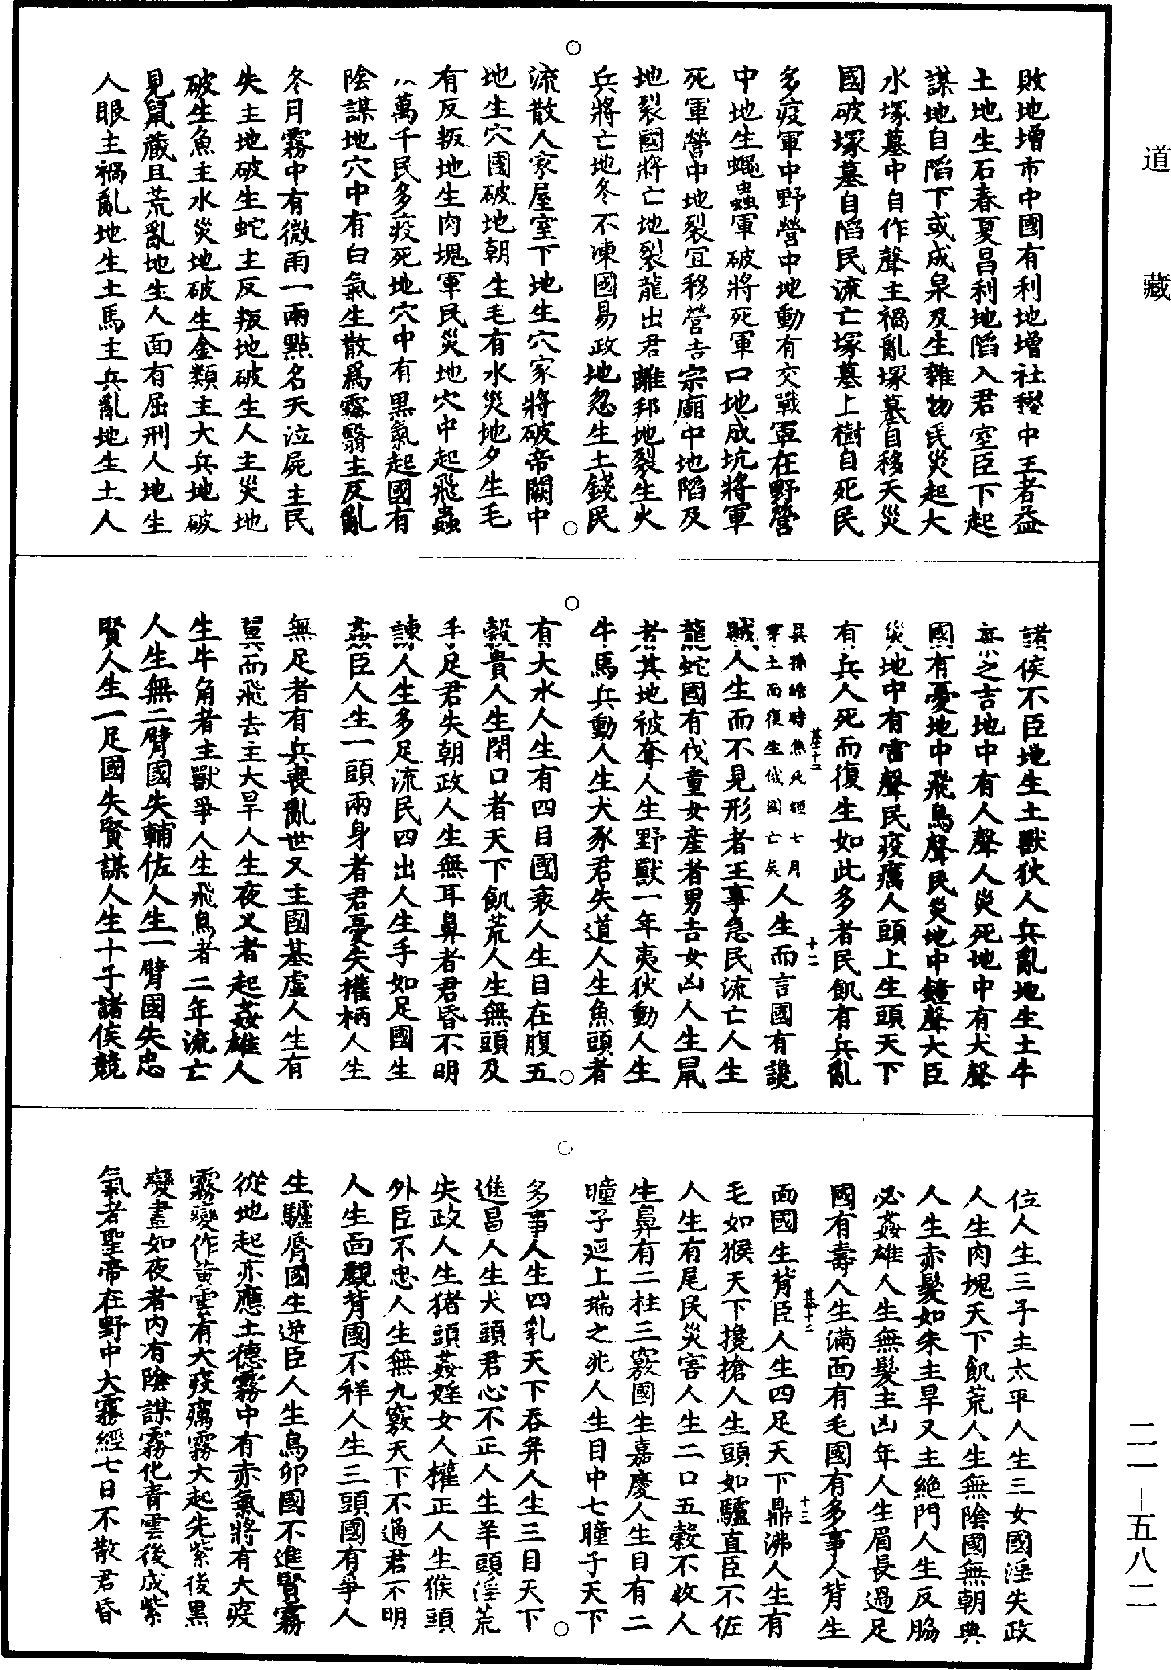 道藏
敗地增市中國有利地增社稷中王者益
土地生石春夏昌利地陷入君室臣下起
謀地自陷下或成泉及生雜物民災起大
水塚墓中自作聲主禍亂塚墓自移天災
國破塚墓自陷民流亡塚墓上樹自死民
多疫軍中野營中地動有交戰軍在野營
中地生蠅蟲軍破將死軍口地成坑將軍
死軍營中地裂宜移營吉宗廟中地陷及
地裂國將亡地裂龍出君離邦地裂生火
兵將亡地冬不凍國易政地忽生土錢民
流散人家屋室下地生穴家將破帝闕中
地生穴國破地朝生毛有水災地夕生毛
有反叛地生肉塊軍民災地穴中起飛蟲
八萬千民多疫死地穴中有黑氣起國有
陰謀地穴中有白氣生散為霧翳主反亂
冬月霧中有微雨一兩點名天泣屍主民
失主地破生蛇主反叛地破生人主災地
破生魚主水災地破生金類主大兵地破
見鼠藏且荒亂地生人面有屈刑人地生
人眼主禍亂地生土馬主兵亂地生土人
諸侯不臣地生土獸狄人兵亂地生土牛
彘之吉地中有人聲人災死地中有犬聲
國有憂地中飛鳥聲民災地中鐘聲大臣
災地中有雷聲民疫癘人頭上生頭天下
有兵人死而復生如此多者民飢有兵亂
吳孫皓時焦死經七月
穿土而復生俄國亡矣
人生而言國有讒
賊人生而不見形者王事急民流亡人生
龍蛇國有伐童女產者男吉女凶人生鼠
者其地被奪人生野獸一年夷狄動人生
牛馬兵動人生犬豕君失道人生魚頭者
有大水人生有四目國衰人生目在腹五
穀貴人生閉口者天下飢荒人生無頭及
手足君失朝政人生無耳鼻者君昏不明
諫人生多足流民四出人生手如足國生
姦臣人生一頭兩身者君憂失權柄人生
無足者有兵喪亂世又主國基虛人生有
翼而飛去主大旱人生夜叉者起姦雄人
生牛角者主獸爭人生飛鳥者二年流亡
人生無二臂國失輔佐人生一臂國失忠
賢人生一足國失賢謀人生十子諸侯競
位人生三子主太平人生三女國淫失政
人生肉塊天下飢荒人生無陰國無朝典
人生赤髮如朱主旱又主絕門人生反腸
必姦雄人生無髮主凶年人生眉長過足
國有壽人生滿面有毛國有多事人背生
面國生背臣人生四足天下鼎沸人生有
毛如猴天下攙搶人生頭如驢直臣不佐
人生有尾民災害人生二口五穀不收人
生鼻有二柱三竅國生嘉慶人生目有二
瞳子迎上瑞之兆人生目中七瞳子天下
多事人生四乳天下吞弁人生三目天下
進昌人生犬頭君心不正人生羊頭淫荒
失政人生猪頭姦婬女人權正人生猴頭
外臣不忠人生無九竅天下不通君不明
人生面觀背國不祥人生三頭國有爭人
生驢脣國生逆臣人生鳥卵國不進賢霧
從地起亦應土德霧中有赤氣將有大疫
霧變作黃雲有大疫癘霧大起先紫後黑
變晝如夜者內有陰謀霧化青雲後成紫
氣者聖帝在野中大霧經七日不散君昏
二一—五八二